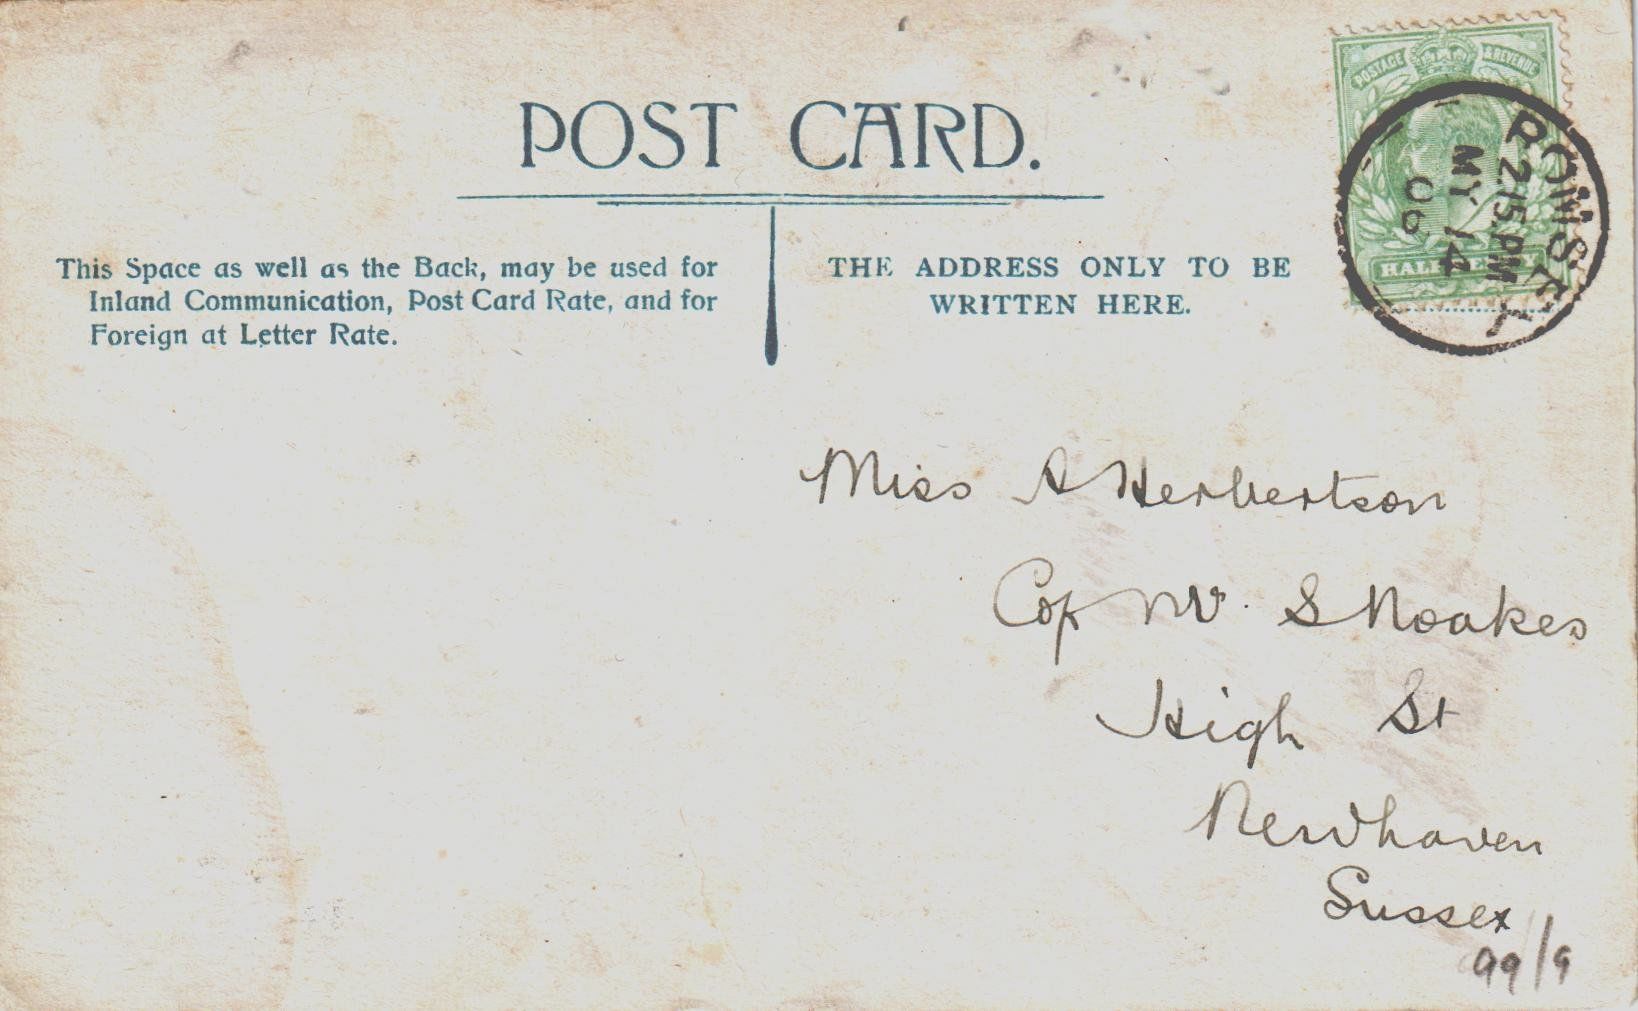 POST CARD.
This Space as well as the Back, may be used for
Inland Communication, Post Card Rate, and for
Foreign at Letter Rate.
THE ADDRESS ONLY TO BE
WRITTEN HERE.
POSTAGE & REVENUE
HALFPENNY
ROMSEY
2.15.PM
MY 14
06
Miss A Herbertson
C of Mr. S Noakes
High St
Newhaven
Sussex
99/9